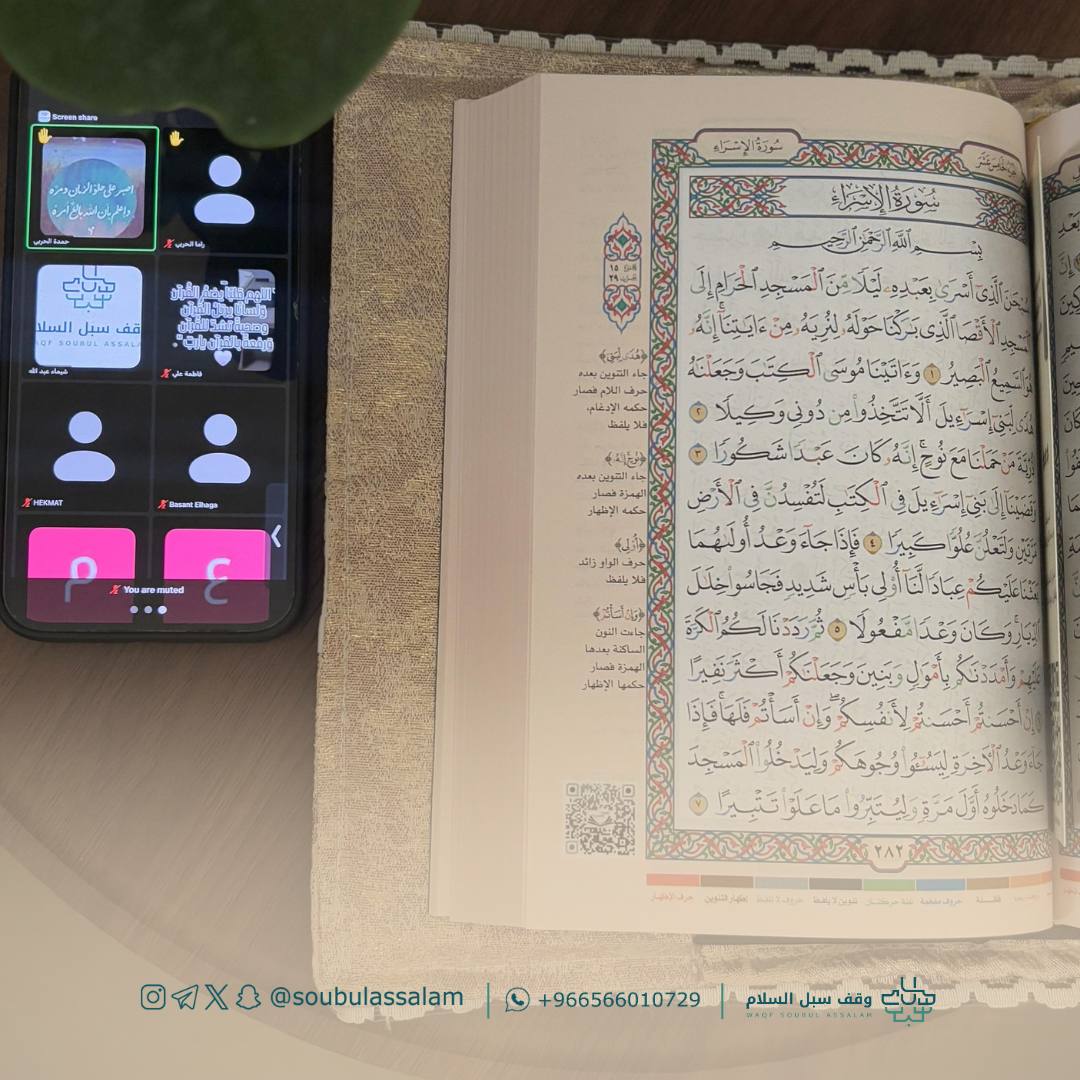 Screen share
اصبر على حلو الزمان ومره
واعلم بأن الله بالغ أمره
حمدة الحربي
راما الحربي
وقف سبل السلام
WAQF SOUBUL ASSALAM
شيماء عبد الله
اللهم قلبًا يضمّ القرآن
ولسانًا يرتل القرآن
وصحبة تشدّ للقرآن
ورفعة بالقرآن يارب".
فاطمة علي
HEKMAT
Basant Elhaga
م
ع
You are muted
سُورَةُ الإِسْرَاءِ
سُورَةُ الإِسْرَاءِ
بِسْمِ اللَّهِ الرَّحْمَٰنِ الرَّحِيمِ
سُبْحَٰنَ ٱلَّذِىٓ أَسْرَىٰ بِعَبْدِهِۦ لَيْلًا مِّنَ ٱلْمَسْجِدِ ٱلْحَرَامِ إِلَى
ٱلْمَسْجِدِ ٱلْأَقْصَا ٱلَّذِى بَٰرَكْنَا حَوْلَهُۥ لِنُرِيَهُۥ مِنْ ءَايَٰتِنَآ إِنَّهُۥ
هُوَ ٱلسَّمِيعُ ٱلْبَصِيرُ ١ وَءَاتَيْنَا مُوسَى ٱلْكِتَٰبَ وَجَعَلْنَٰهُ
هُدًى لِّبَنِىٓ إِسْرَٰٓءِيلَ أَلَّا تَتَّخِذُوا۟ مِن دُونِى وَكِيلًا ٢
ذُرِّيَّةَ مَنْ حَمَلْنَا مَعَ نُوحٍ إِنَّهُۥ كَانَ عَبْدًا شَكُورًا ٣
وَقَضَيْنَآ إِلَىٰ بَنِىٓ إِسْرَٰٓءِيلَ فِى ٱلْكِتَٰبِ لَتُفْسِدُنَّ فِى ٱلْأَرْضِ
مَرَّتَيْنِ وَلَتَعْلُنَّ عُلُوًّا كَبِيرًا ٤ فَإِذَا جَآءَ وَعْدُ أُولَىٰهُمَا
بَعَثْنَا عَلَيْكُمْ عِبَادًا لَّنَآ أُو۟لِى بَأْسٍ شَدِيدٍ فَجَاسُوا۟ خِلَٰلَ
ٱلدِّيَارِ وَكَانَ وَعْدًا مَّفْعُولًا ٥ ثُمَّ رَدَدْنَا لَكُمُ ٱلْكَرَّةَ
عَلَيْهِمْ وَأَمْدَدْنَٰكُم بِأَمْوَٰلٍ وَبَنِينَ وَجَعَلْنَٰكُمْ أَكْثَرَ نَفِيرًا
٦ إِنْ أَحْسَنتُمْ أَحْسَنتُمْ لِأَنفُسِكُمْ وَإِنْ أَسَأْتُمْ فَلَهَا فَإِذَا
جَآءَ وَعْدُ ٱلْءَاخِرَةِ لِيَسُۥٓـُٔوا۟ وُجُوهَكُمْ وَلِيَدْخُلُوا۟ ٱلْمَسْجِدَ
كَمَا دَخَلُوهُ أَوَّلَ مَرَّةٍ وَلِيُتَبِّرُوا۟ مَا عَلَوْا۟ تَتْبِيرًا ٧
٢٨٢
١٥
٢٩
﴿هُدًى لِّبَنِي﴾
جاء التنوين بعده
حرف اللام فصار
حكمه الإدغام،
فلا يلفظ
﴿نُوحٍ إِنَّهُ﴾
جاء التنوين بعده
الهمزة فصار
حكمه الإظهار
﴿أُوْلِي﴾
حرف الواو زائد
فلا يلفظ
﴿وَإِنْ أَسَأْتُمْ﴾
جاءت النون
الساكنة بعدها
الهمزة فصار
حكمها الإظهار
قلقلة حروف مفخمة غنة حركتان تنوين لا يلفظ حروف لا تلفظ إظهار التنوين حرف الإظهار
@soubulassalam
+966566010729
وقف سبل السلام
WAQF SOUBUL ASSALAM